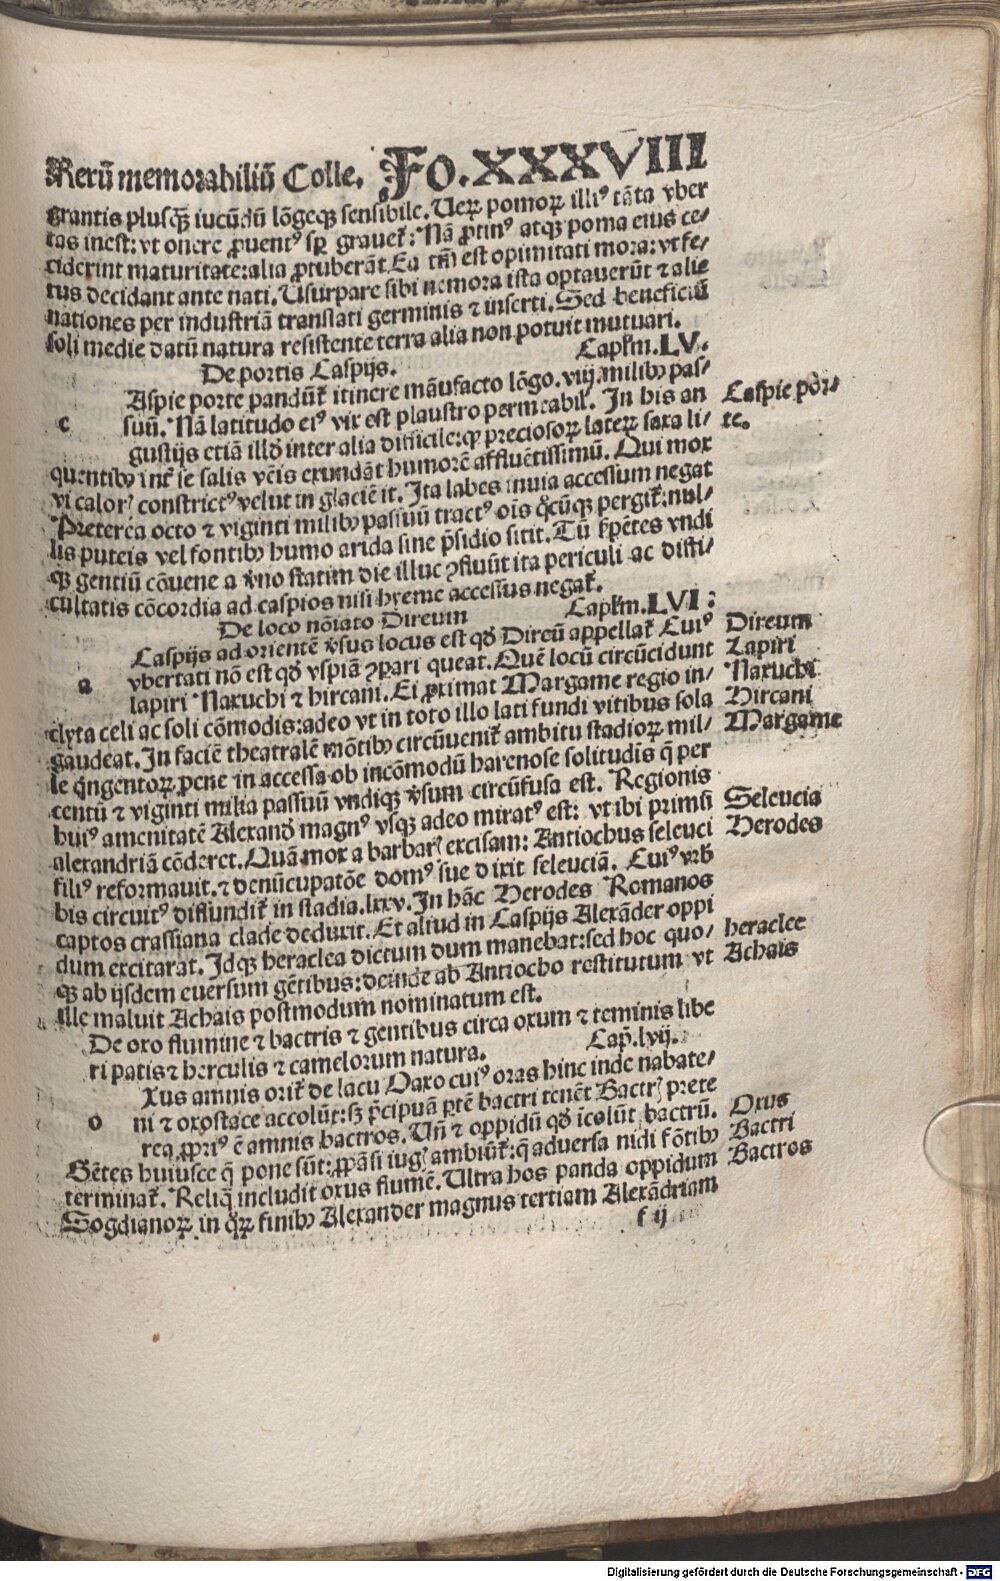 Rerū memorabiliū Colle. Fo. XXXVIII
grantis plusq̄ȝ iucūdū lōgeqȝ sensibile. Ueꝝ pomoꝝ illiꝰ tāta vber
tas inest: vt onere ꝓuentꝰ sꝑ grauet̄: Nā ꝓtinꝰ atqȝ poma eius ce⸗
ciderint maturitate: alia ꝓtuberāt Ea tm̄ est opimitati mora: vt fe⸗
tus decidant ante nati. Usurpare sibi nemora ista optauerūt ⁊ alie
nationes per industriā translati germinis ⁊ inserti. Sed beneficiū
soli medie datū natura resistente terra alia non potuit mutuari.
De portis Caspijs. Capl̄m. LV.
c Aspie porte pandūt̄ itinere māufacto lōgo. viij. milibꝰ pas⸗
suū. Nā latitudo eiꝰ vix est plaustro permeabil̄. In his an
gustijs etiā illd̄ inter alia difficile: qꝫ preciosoꝝ lateꝝ saxa li⸗
quentibꝰ int̄ se salis vēis exundāt humorē affluētissimū. Qui mox
vi calor̄ constrictꝰ velut in glaciē it. Ita labes inuia accessum negat
Preterea octo ⁊ viginti milibꝰ passuū tractꝰ oīs q̄cūqȝ pergit̄: nul⸗
lis puteis vel fontibꝰ humo arida sine p̄sidio sitit. Tū ẜpētes vndi
qȝ gentiū cōuene a v̄no statim die illuc ꝯfluūt ita periculi ac diffi⸗
cultatis cōcordia ad caspios nisi hyeme accessus negat̄.
De loco nōiato Direum Capl̄m. LVI:
a Caspijs ad orientē v̄sus locus est qd̄ Direū appellat̄ Cuiꝰ
vbertati nō est qd̄ vspiā ꝯpari queat. Quē locū circūcidunt
lapiri Naxuchi ⁊ hircani. Ei ꝓximat Margame regio in⸗
clyta celi ac soli cōmodis: adeo vt in toto illo lati fundi vitibus sola
gaudeat. In faciē theatralē mōtibꝰ circūuenit̄ ambitu stadioꝝ mil⸗
le q̄ngentoꝝ. pene in accessa ob incōmodū harenose solitudis̄ q̄ per
centū ⁊ viginti milia passuū vndiqȝ v̄sum circūfusa est. Regionis
huiꝰ amenitatē Alexand̄ magnꝰ vsqȝ adeo miratꝰ est: vt ibi primū
alexandriā cōderet. Quā mox a barbar̄ excisam: Antiochus seleuci
filiꝰ reformauit. ⁊ denūcupatōe domꝰ sue dixit seleuciā. Cuiꝰ vrb̄
bis circuitꝰ diffundit̄ in stadia. lxxv. In hāc Herodes Romanos
captos crassiana clade deduxit. Et aliud in Caspijs Alexāder oppi
dum excitarat. Idqȝ heraclea dictum dum manebat: sed hoc quo⸗
qȝ ab ijsdem euersum gētibus: deinde ab Antiocho restitutum vt
ille maluit Achais postmodum nominatum est.
De oxo flumine ⁊ bactris ⁊ gentibus circa oxum ⁊ teminis libe
ri patis ⁊ herculis ⁊ camelorum natura. Cap̄. lvij.
o Xus amnis orit̄ de lacu Oaxo cuiꝰ oras hinc inde nabate⸗
ni ⁊ oxostace accolūt: sȝ p̄cipuā ꝑtē bactri tenēt Bactr̄ prete
rea ꝓpriꝰ ē amnis bactros. Un̄ ⁊ oppidū qd̄ īcolūt bactrū.
Gētes huiusce q̄ pone sūt: ꝓpāsi iuḡ ambiūt̄: q̄ aduersa nidi fōtibꝰ
terminat̄. Reliq̄ includit oxus flumē. Ultra hos panda oppidum
Sogdianoꝝ in q̄ꝝ finibꝰ Alexander magnus tertiam Alexādriam
f ij
Caspie por⸗
te.
Direum
Lapiri
Naxuchi
Hircani
Margame
Seleucia
Herodes
heraclee
Achais
Oxus
Bactri
Bactros
Digitalisierung gefördert durch die Deutsche Forschungsgemeinschaft - DFG